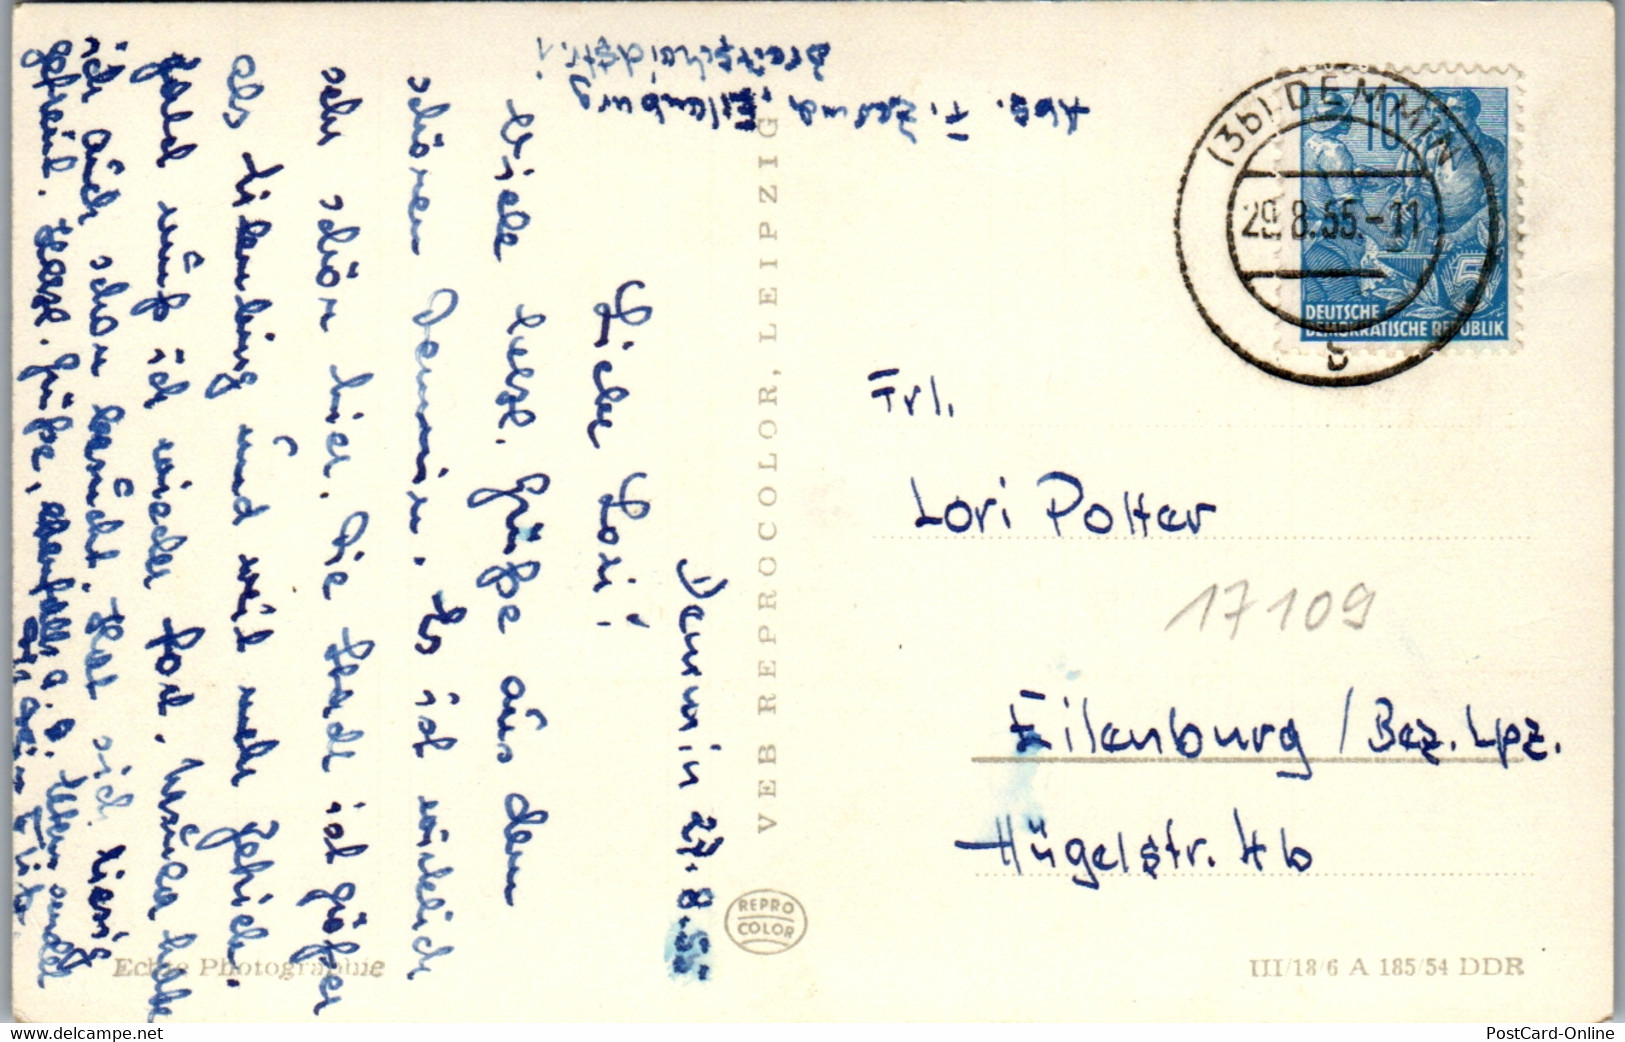 Demmin 27.8.55
Liebe Lori!
Viele herzl. Grüße aus dem
schönen Demmin. Es ist wirklich
sehr schön hier. Die Stadt ist größer
als Eilenburg und weil mehr
Bald muß ich wieder fort. Ursula habe
ich auch schon besucht. Hat sich riesig
gefreut. Herzl. Grüße, ebenfalls a. d. Eltern sendet
Abs. F.
Eilenburg
Breitscheidstr. 1
VEB REPROCOLOR, LEIPZIG
REPRO
COLOR
Echte Photographie
(3b) DEMMIN
29.8.55.-11
b
10
5
DEUTSCHE
DEMOKRATISCHE REPUBLIK
Frl.
Lori Potter
17109
Eilenburg / Bez. Lpz.
Hügelstr. 4b
III/18/6 A 185/54 DDR
www.delcampe.net
PostCard-Online